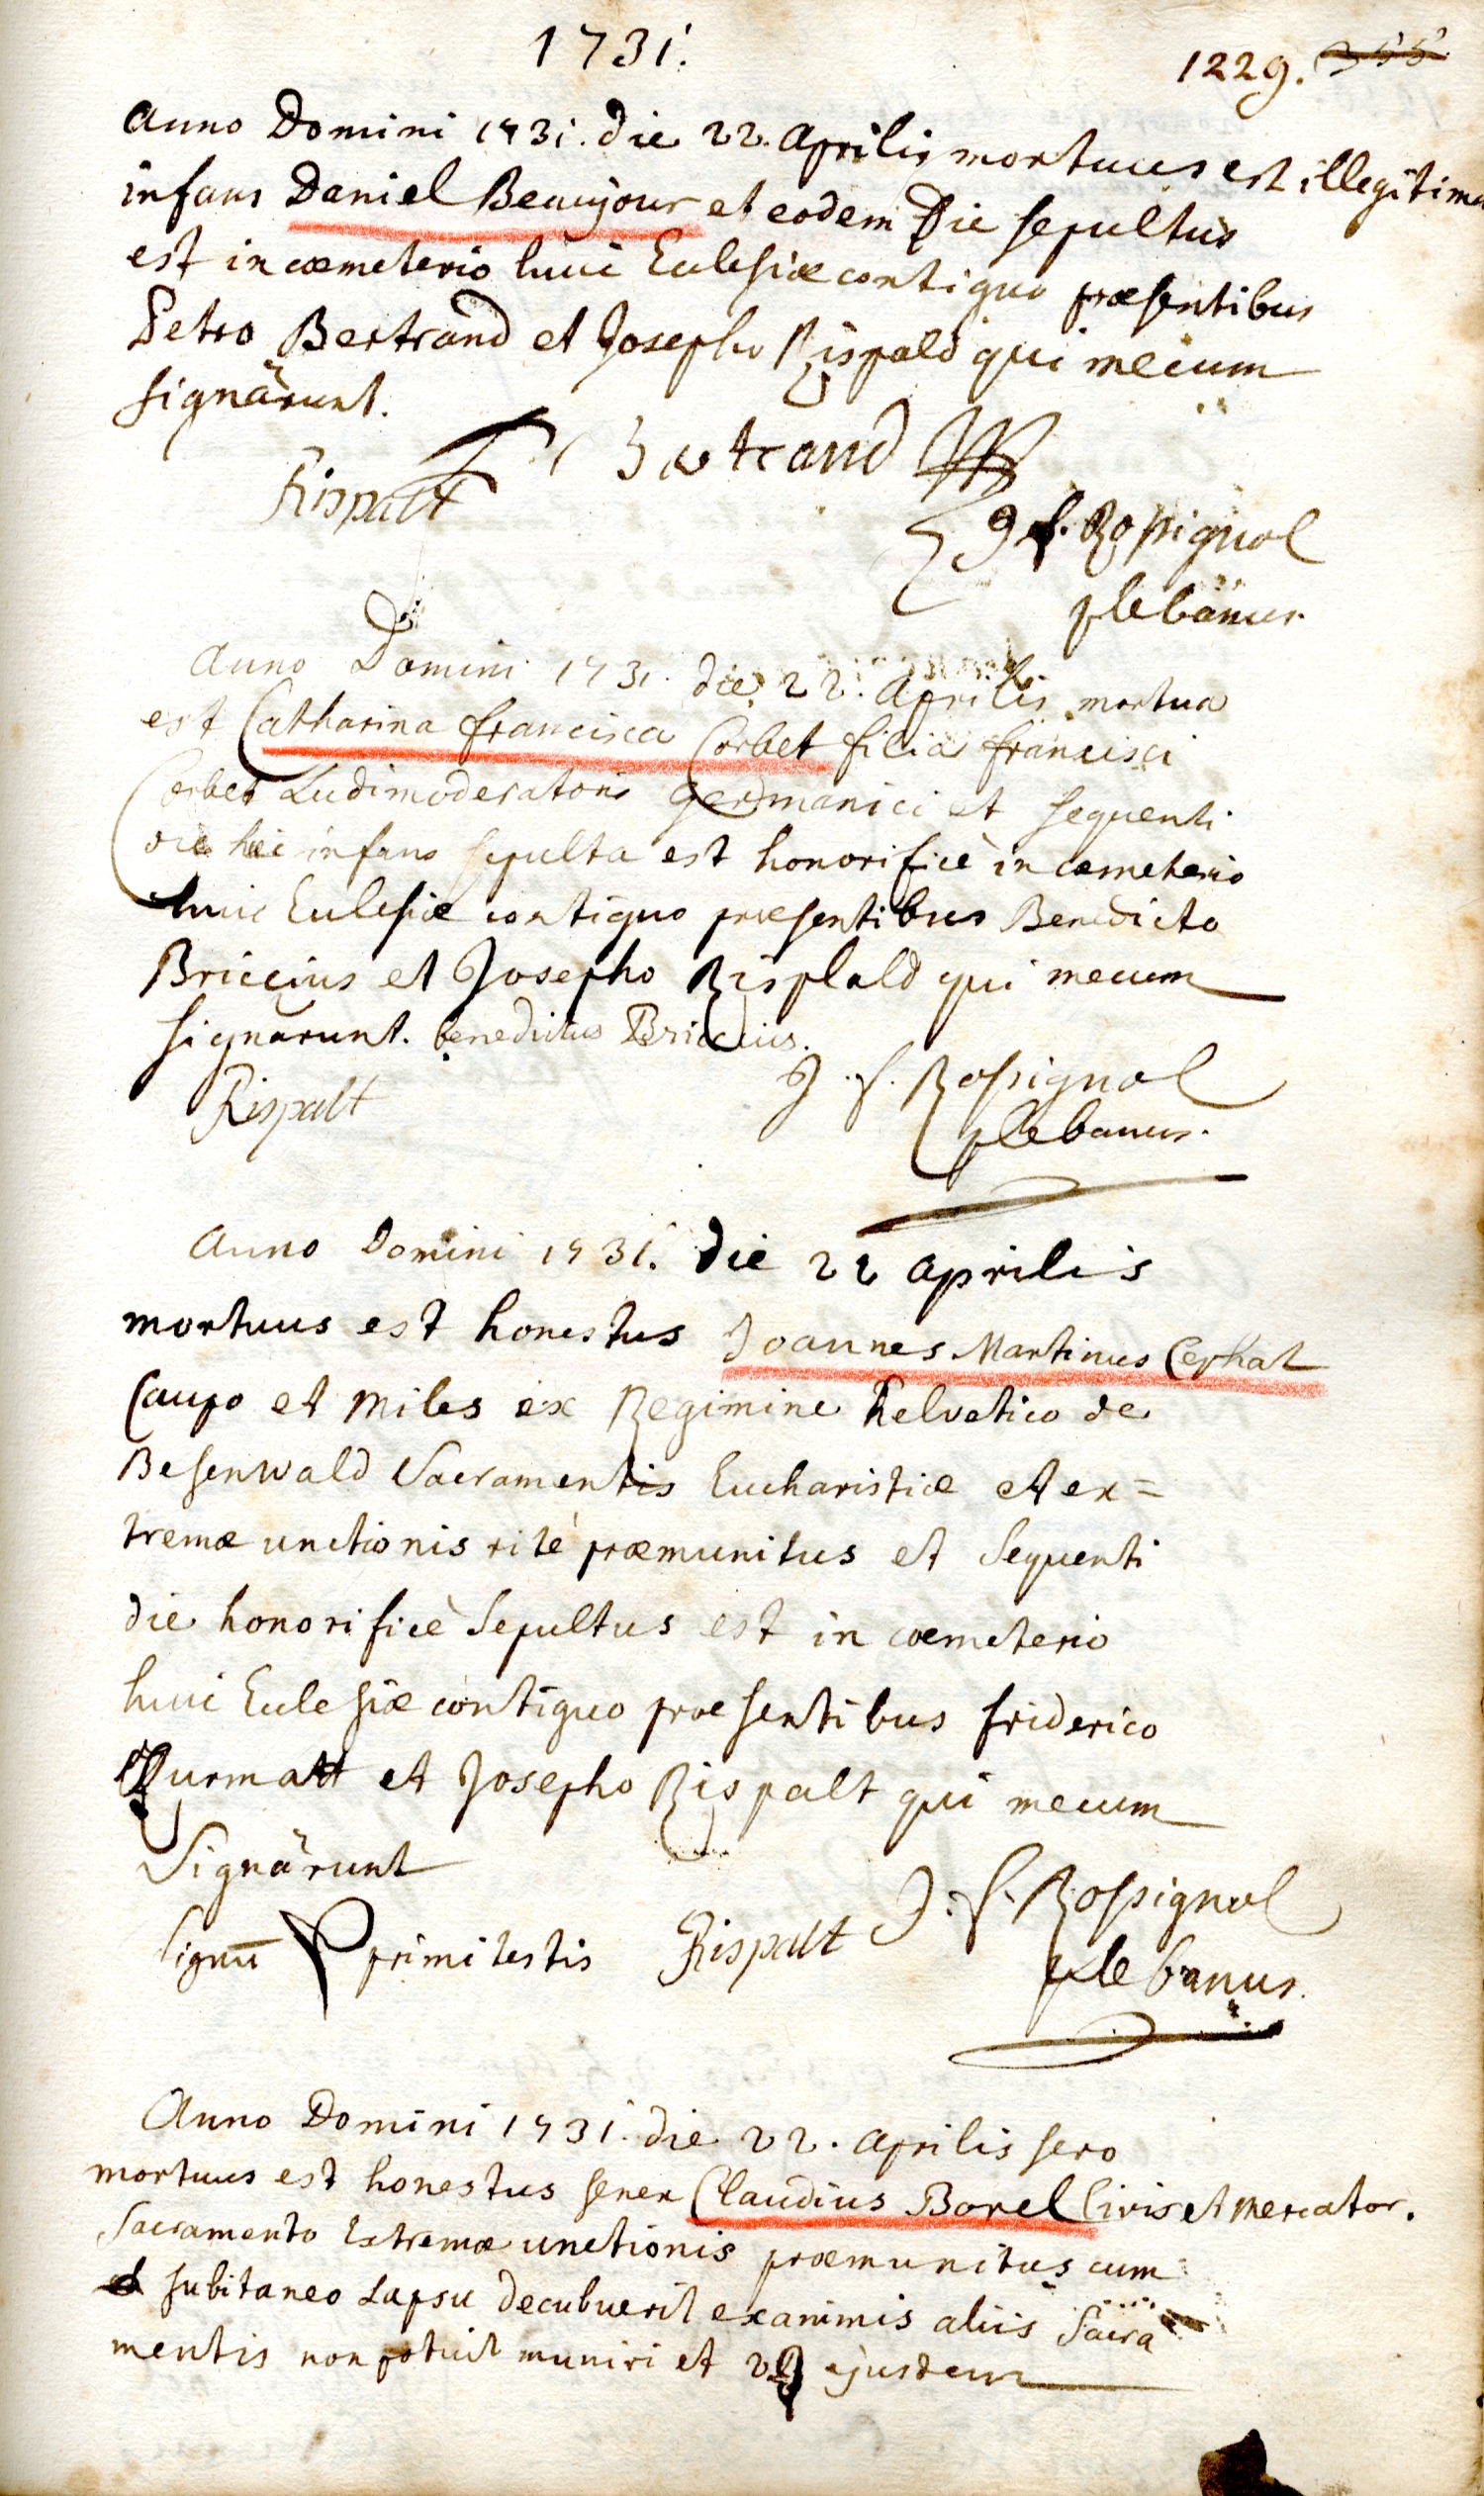 1731.
1229. 355
Anno Domini 1731. die 22. Aprilis mortuus est illegitimus
infans Daniel Beaujour et eodem Die sepultus
est in coemeterio huic Ecclesiæ contiguo præsentibus
Petro Bertrand et Josepho Rispald qui mecum
signărunt.
Bertrand
Rispalt
J. f. Rossignol
plebanus.
Anno Domini 1731. die 22. Aprilis mortua
est Catharina francisca Corbet filia francisci
Corbet Ludimoderatoris germanici et sequenti
die hæc infans sepulta est honorificè in coemeterio
huic Ecclesiæ contiguo præsentibus Benedicto
Briccius et Josepho Risplald qui mecum
signarunt. benedictus Briccius.
Rispalt
J. f. Rossignol
plebanus.
Anno Domini 1731. die 22 aprilis
mortuus est honestus Joannes Martinus Cephat
Caupo et miles ex Regimine helvetico de
Besenwald Sacramentis Eucharistiæ et ex=
tremæ unctionis ritè præmunitus et Sequenti
die honorificè Sepultus est in coemeterio
huic Ecclesiæ contiguo præsentibus friderico
Durmatt et Josepho Rispalt qui mecum
Signărunt
Signū primi testis Rispalt
J. f. Rossignol
plebanus.
Anno Domini 1731. die 22. aprilis sero
mortuus est honestus senex Claudius Borel Civis et mercator.
Sacramento Extremæ unctionis præmunitus cum
subitaneo Lapsu decubuerit exanimis aliis Sacra
mentis non potuit muniri et ejusdem